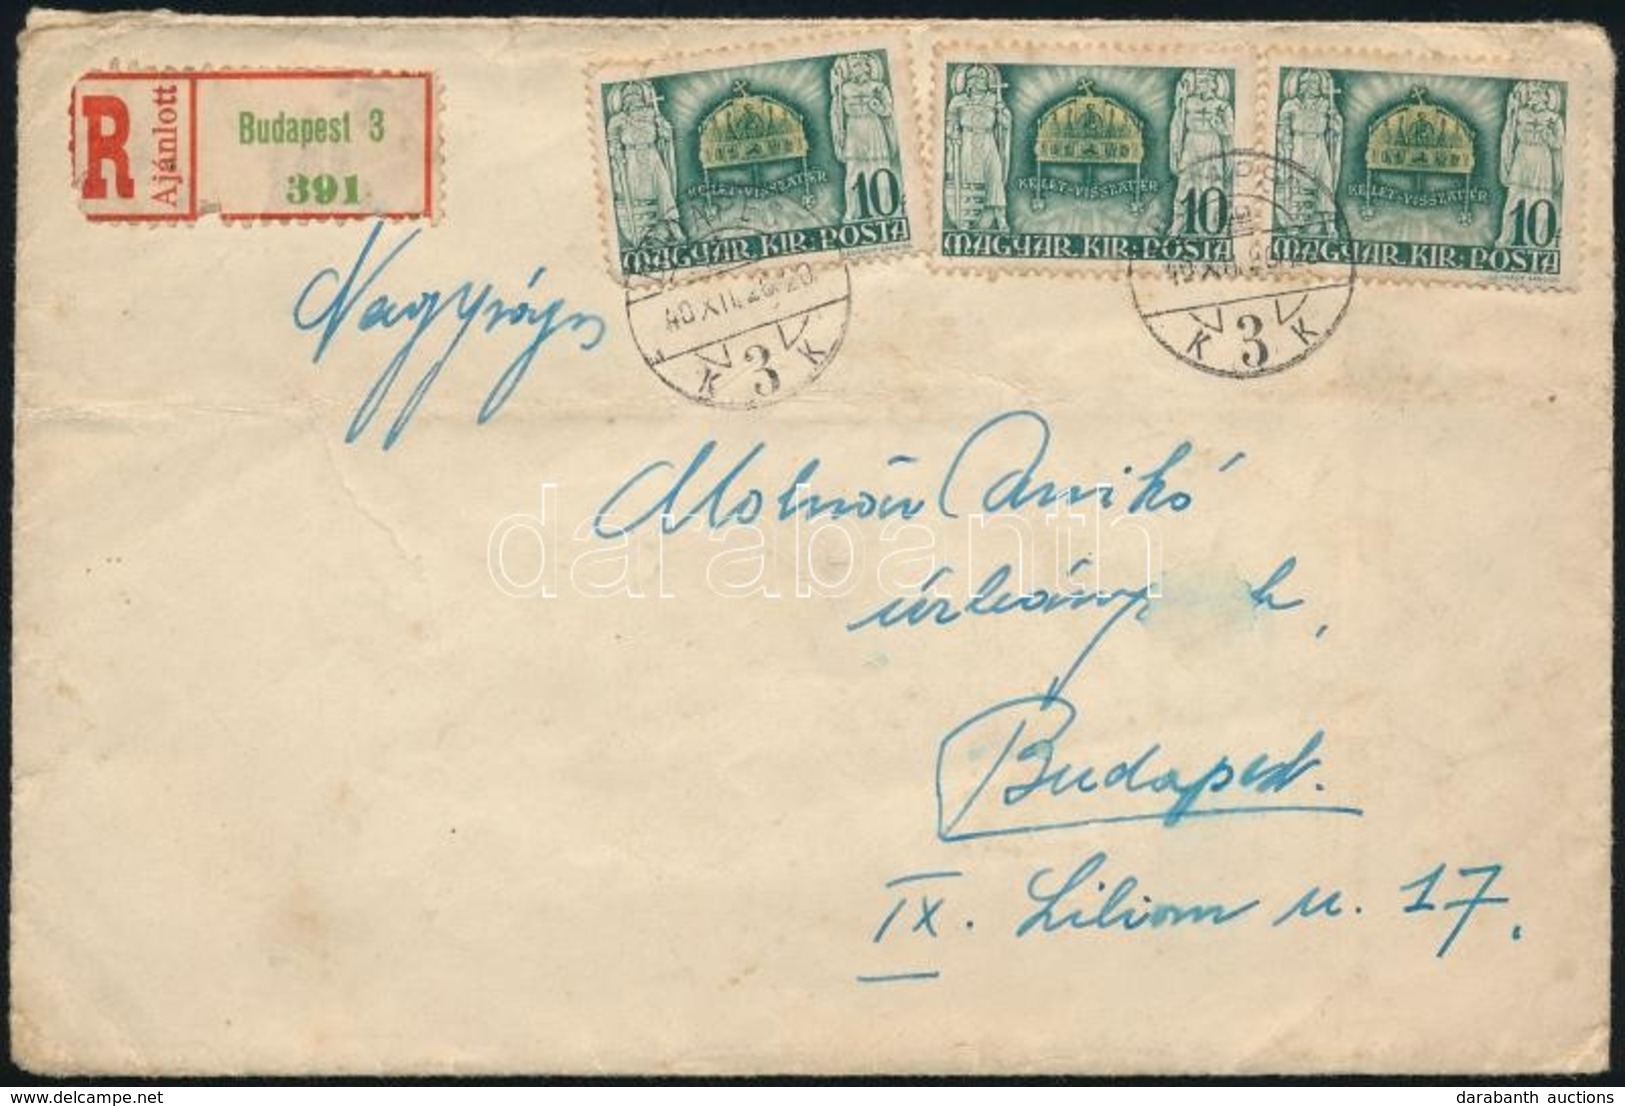 R Ajánlott
Budapest 3
391
KELET-VISSZATÉR
10
MAGYAR KIR. POSTA
KELET-VISSZATÉR
10
MAGYAR KIR. POSTA
KELET-VISSZATÉR
10
MAGYAR KIR. POSTA
40 XII. 20 20
K 3 K
K 3 K
Nagyságos
Molnár Anikó
Budapest.
IX. Liliom u. 17.
darabanth
darabanth auctions